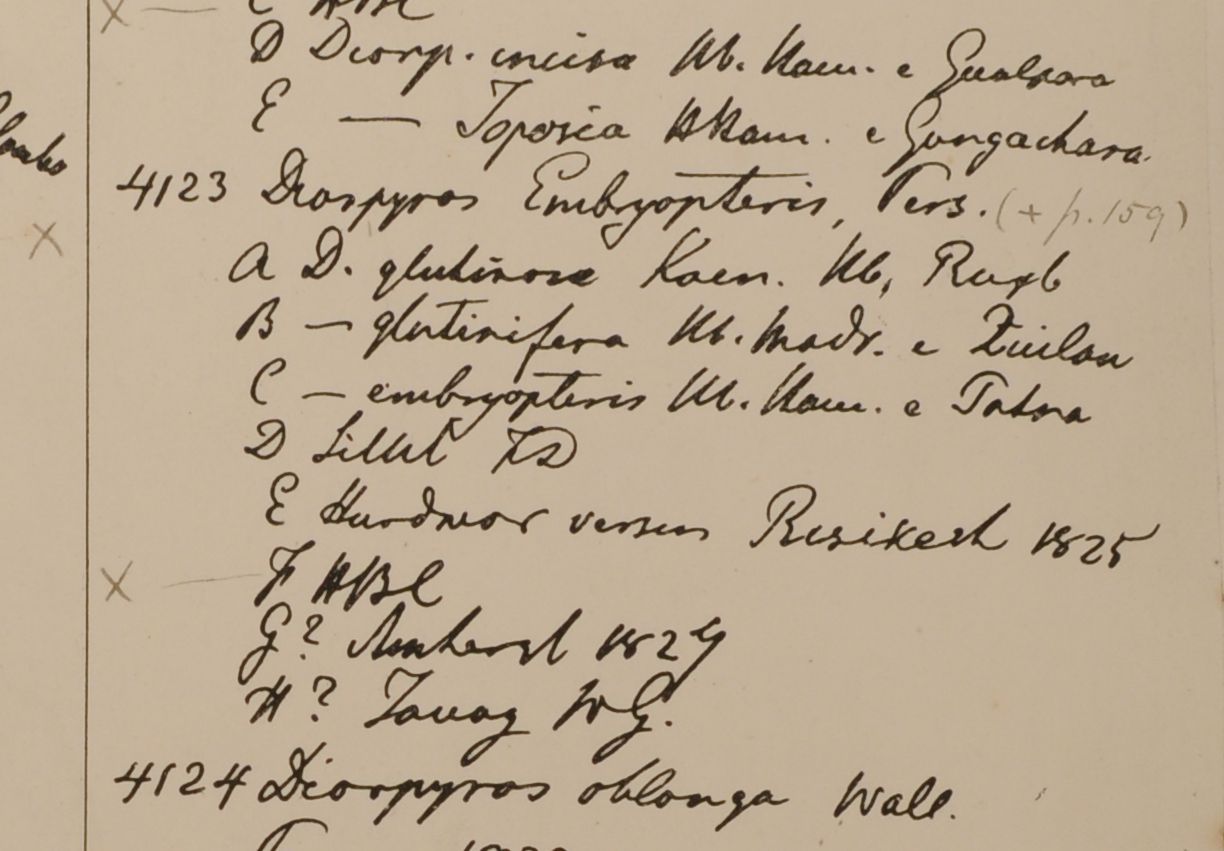 C HBC
D Diosp. incisa Hb. Ham. e Gualpara
E — Toposia HHam. e Gongachara.
4123 Diospyros Embryopteris, Pers. (+ p. 159)
A D. glutinosa Koen. Hb, Roxb
B — glutinifera Hb. Madr. e Zeilon
C — embryopteris Hb. Ham. e Patna
D Sillet FD
E Hurdwor versus Resikesh 1825
X — F HBC
G? Amherst 1827
H? Tavoy WG.
4124 Diospyros oblonga Wall.